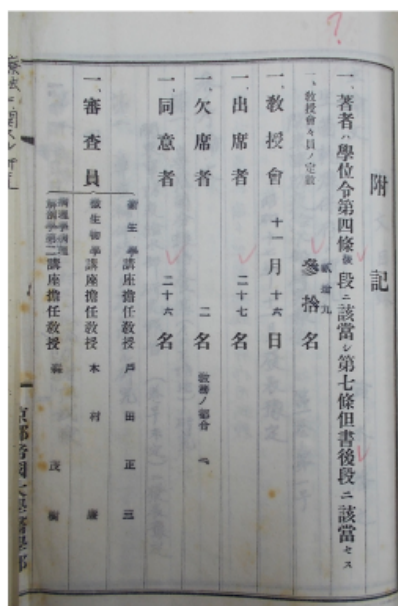 附記
一、著者ハ學位令第四條後段ニ該當シ第七條但書後段ニ該當セス
一、教授會々員ノ定數 貳拾九 參拾名
一、教授會 十一月十六日
一、出席者 二十七名
一、欠席者 二名 教務ノ都合
一、同意者 二十六名
一、審査員
衞生學講座擔任教授 戶田正三
微生物學講座擔任教授 木村廉
病理學病理解剖學第二講座擔任教授 森茂樹
京都帝國大學醫學部